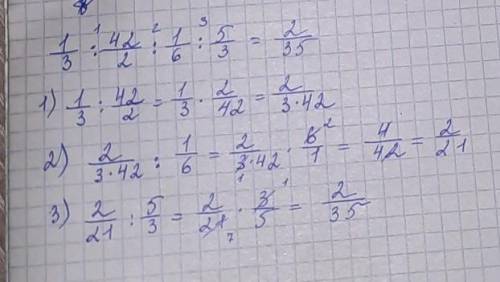 1/3 :¹ 42/2 :² 1/6 :³ 5/3 = 2/35
1) 1/3 : 42/2 = 1/3 · 2/42 = 2/3·42
2) 2/3·42 : 1/6 = 2/3·42 · 6/1 = 4/42 = 2/21
3) 2/21 : 5/3 = 2/21 · 3/5 = 2/35